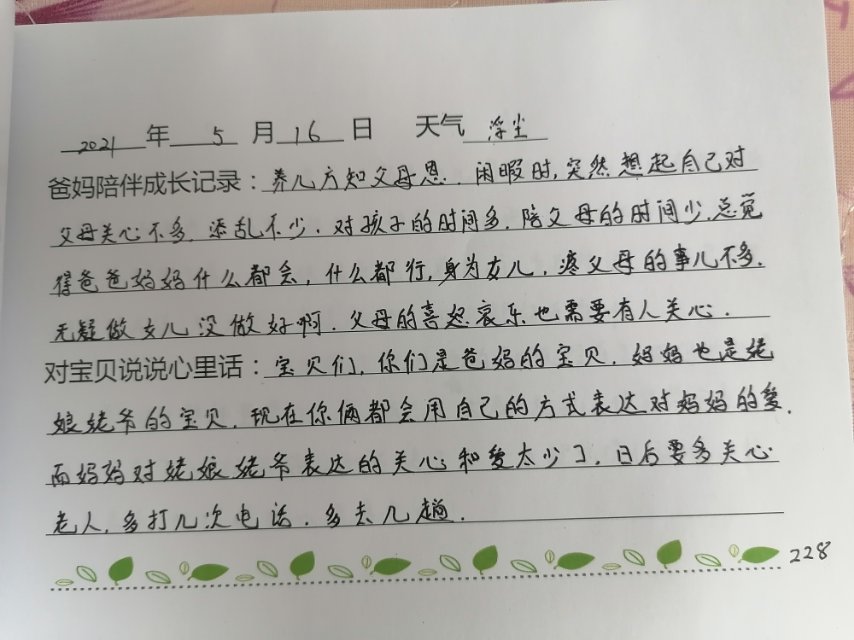 2021年5月16日 天气 浮尘
爸妈陪伴成长记录：养儿方知父母恩．闲暇时,突然想起自己对
父母关心不多．添乱不少．对孩子的时间多．陪父母的时间少.总觉
得爸爸妈妈什么都会，什么都行,身为女儿．疼父母的事儿不多．
无疑做女儿没做好啊．父母的喜怒哀乐也需要有人关心．
对宝贝说说心里话：宝贝们，你们是爸妈的宝贝．妈妈也是姥
娘姥爷的宝贝．现在你俩都会用自己的方式表达对妈妈的爱．
而妈妈对姥娘姥爷表达的关心和爱太少了．日后要多关心
老人,多打几次电话．多去几趟．
228